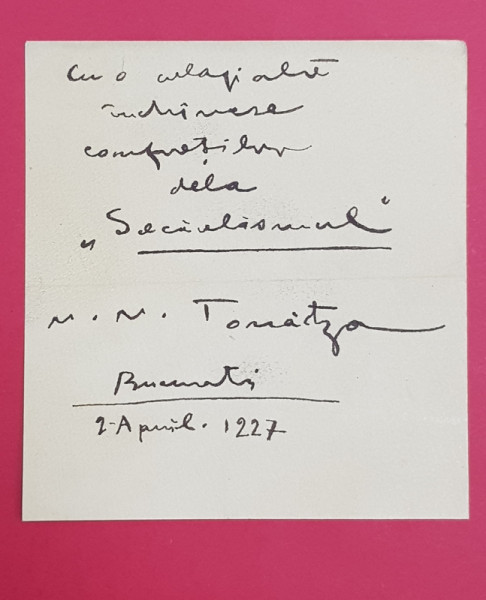 Cu o colegială
închinare
confraților
dela
„Socialismul"
N. N. Tonitza
București
2 April. 1927